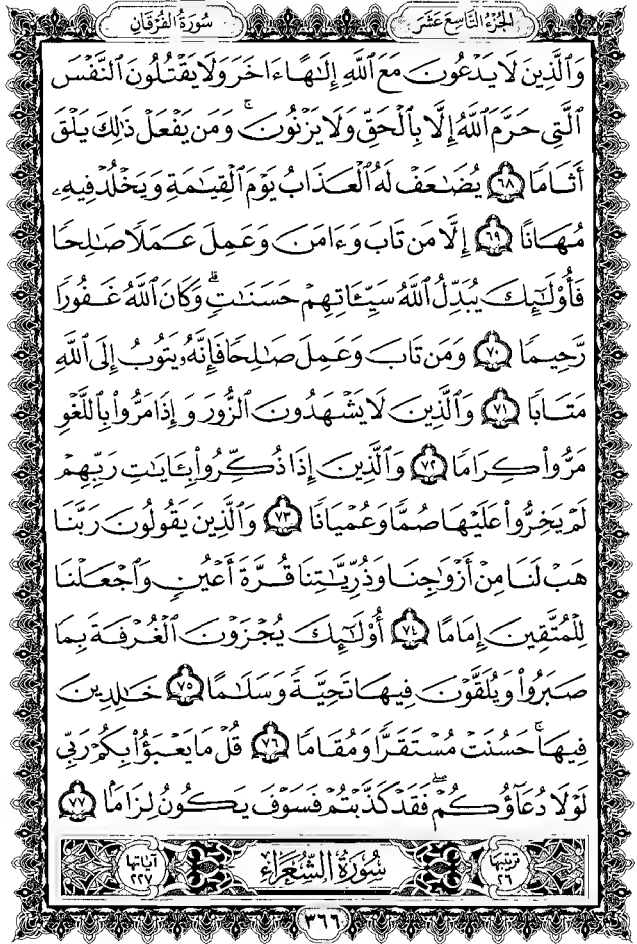 الجزء التاسع عشر
سورة الفرقان
وَٱلَّذِينَ لَا يَدْعُونَ مَعَ ٱللَّهِ إِلَٰهًا ءَاخَرَ وَلَا يَقْتُلُونَ ٱلنَّفْسَ
ٱلَّتِي حَرَّمَ ٱللَّهُ إِلَّا بِٱلْحَقِّ وَلَا يَزْنُونَ ۚ وَمَن يَفْعَلْ ذَٰلِكَ يَلْقَ
أَثَامًا ٦٨ يُضَٰعَفْ لَهُ ٱلْعَذَابُ يَوْمَ ٱلْقِيَٰمَةِ وَيَخْلُدْ فِيهِۦ
مُهَانًا ٦٩ إِلَّا مَن تَابَ وَءَامَنَ وَعَمِلَ عَمَلًا صَٰلِحًا
فَأُوْلَٰٓئِكَ يُبَدِّلُ ٱللَّهُ سَيِّـَٔاتِهِمْ حَسَنَٰتٍ ۗ وَكَانَ ٱللَّهُ غَفُورًا
رَّحِيمًا ٧٠ وَمَن تَابَ وَعَمِلَ صَٰلِحًا فَإِنَّهُۥ يَتُوبُ إِلَى ٱللَّهِ
مَتَابًا ٧١ وَٱلَّذِينَ لَا يَشْهَدُونَ ٱلزُّورَ وَإِذَا مَرُّواْ بِٱللَّغْوِ
مَرُّواْ كِرَامًا ٧٢ وَٱلَّذِينَ إِذَا ذُكِّرُواْ بِـَٔايَٰتِ رَبِّهِمْ
لَمْ يَخِرُّواْ عَلَيْهَا صُمًّا وَعُمْيَانًا ٧٣ وَٱلَّذِينَ يَقُولُونَ رَبَّنَا
هَبْ لَنَا مِنْ أَزْوَٰجِنَا وَذُرِّيَّٰتِنَا قُرَّةَ أَعْيُنٍ وَٱجْعَلْنَا
لِلْمُتَّقِينَ إِمَامًا ٧٤ أُوْلَٰٓئِكَ يُجْزَوْنَ ٱلْغُرْفَةَ بِمَا
صَبَرُواْ وَيُلَقَّوْنَ فِيهَا تَحِيَّةً وَسَلَٰمًا ٧٥ خَٰلِدِينَ
فِيهَا ۚ حَسُنَتْ مُسْتَقَرًّا وَمُقَامًا ٧٦ قُلْ مَا يَعْبَؤُاْ بِكُمْ رَبِّي
لَوْلَا دُعَآؤُكُمْ ۖ فَقَدْ كَذَّبْتُمْ فَسَوْفَ يَكُونُ لِزَامًا ٧٧
ترتيبها ٢٦ سورة الشعراء آياتها ٢٢٧
٣٦٦